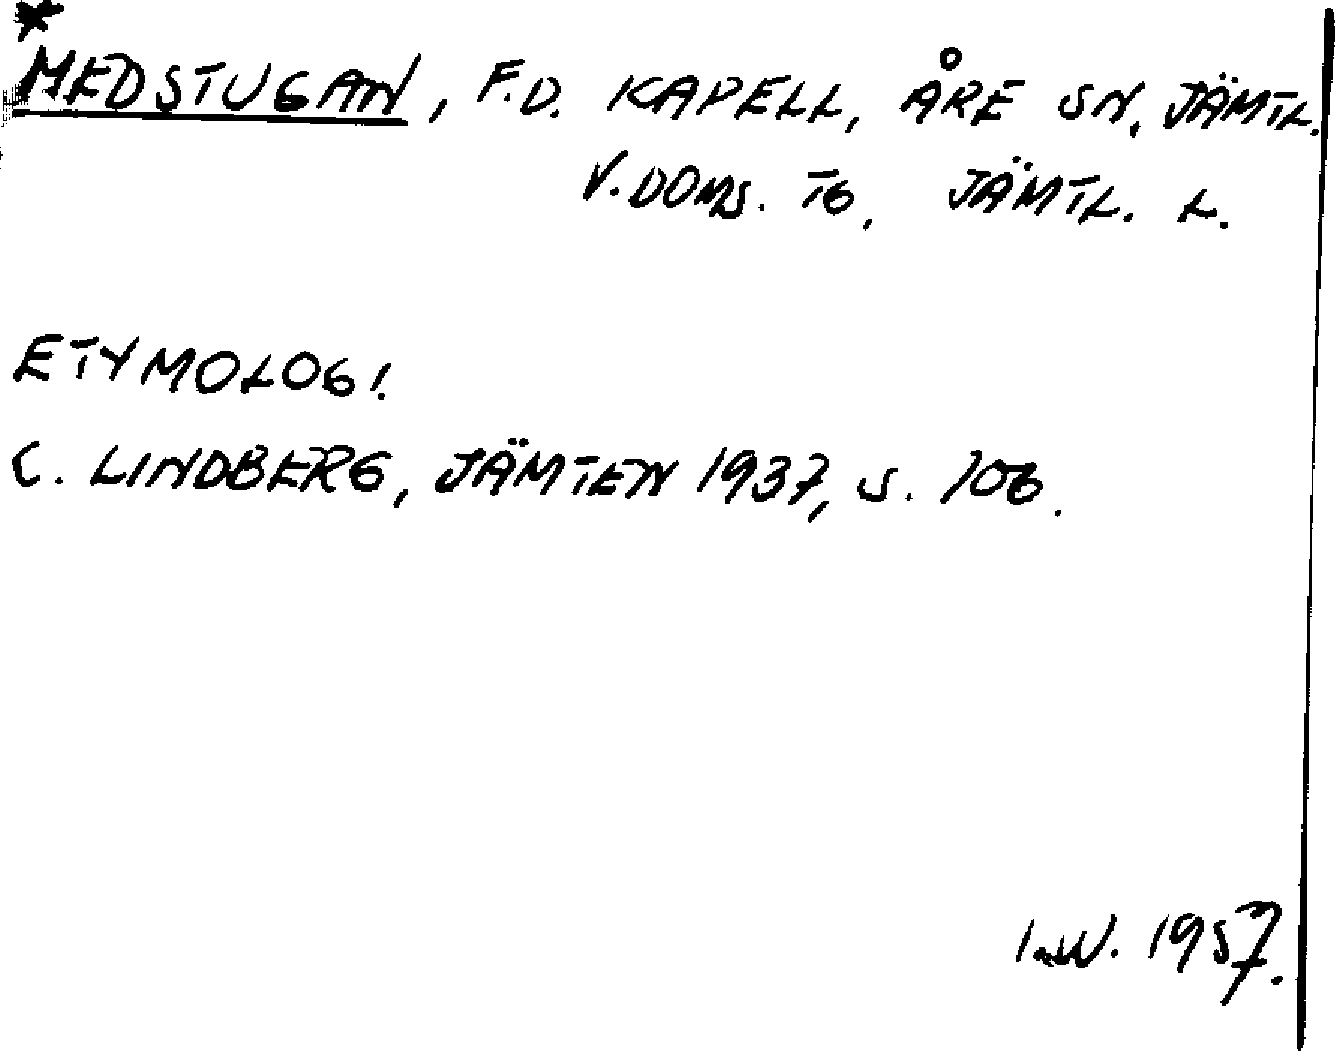 *
MEDSTUGAN, F.D. KAPELL, ÅRE SN, JÄMTL.
V. DOMS. TG, JÄMTL. L.
ETYMOLOGI.
C. LINDBERG, JÄMTEN 1937, S. 106.
I.W. 1957.